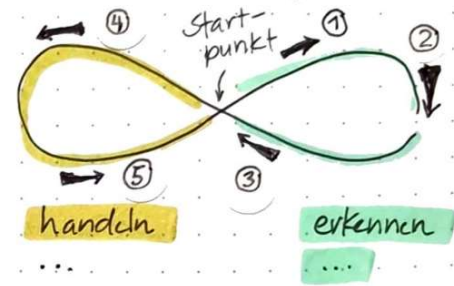 ④
Start-
punkt
①
②
⑤
③
handeln
...
erkennen
...